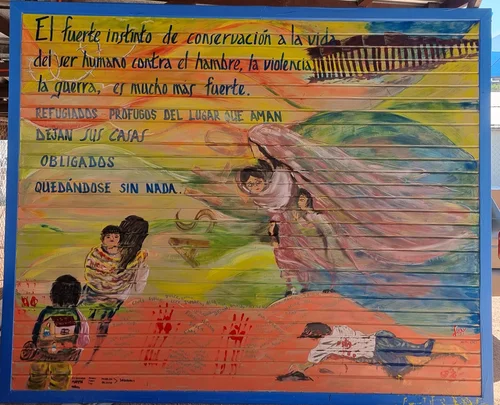 El fuerte instinto de conservación a la vida
del ser humano contra el hambre, la violencia,
la guerra, es mucho mas fuerte.
REFUGIADOS PRÓFUGOS DEL LUGAR QUE AMAN
DEJAN SUS CASAS
OBLIGADOS
QUEDÁNDOSE SIN NADA..